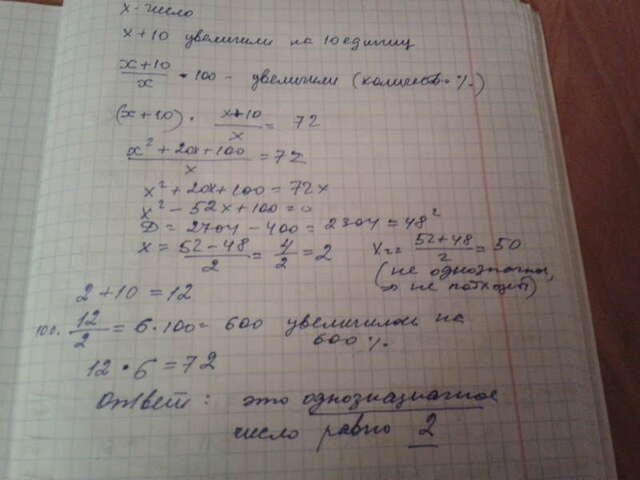 x - число
x+10 увеличили на 10 единиц
(x+10)/x • 100 - увеличили (количеств. %)
(x+10) • (x+10)/x = 72
(x² + 20x + 100)/x = 72
x² + 20x + 100 = 72x
x² - 52x + 100 = 0
D = 2704 - 400 = 2304 = 48²
x = (52-48)/2 = 4/2 = 2 x₂ = (52+48)/2 = 50
(не однозначн,
=> не потходит)
2 + 10 = 12
100. 12/2 = 6 • 100 = 600 увеличилось на
600 %.
12 • 6 = 72
Ответ: это однозназначное
число равно 2